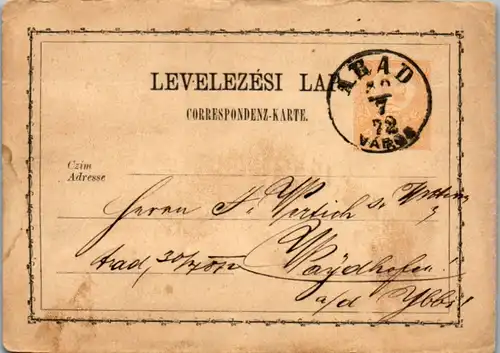 LEVELEZÉSI LAP
CORRESPONDENZ-KARTE.
ARAD
30
7
72
VÁROS
Czim
Adresse
Herrn J. Wertich
Waydhofen
a/d Ybbs